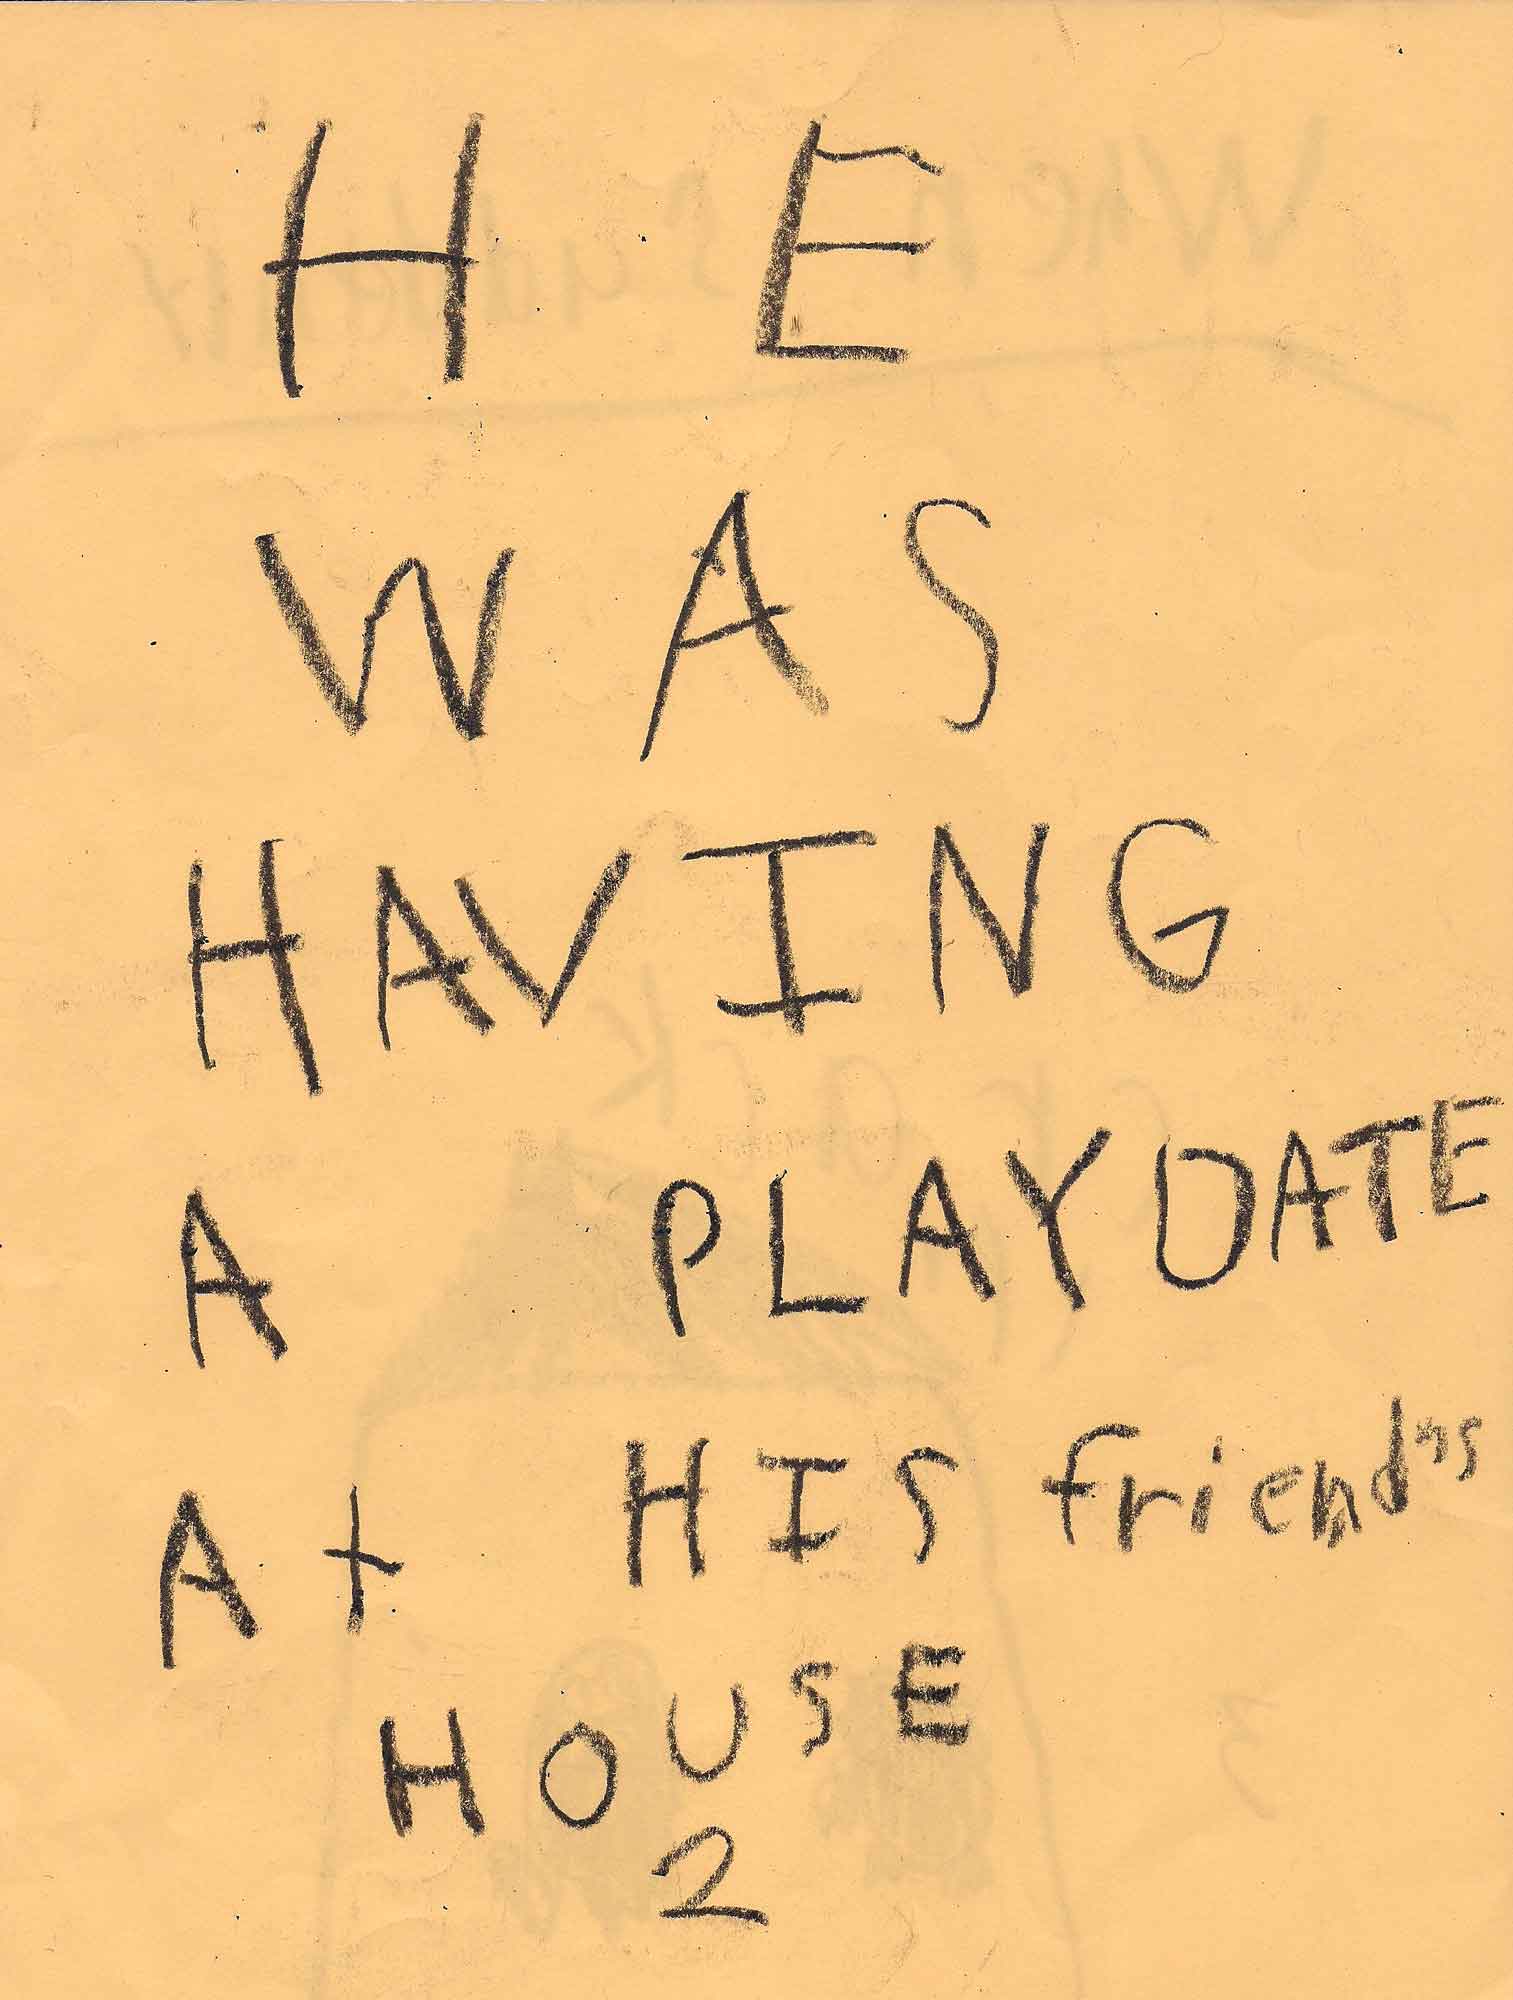 HE
WAS
HAVING
A PLAYDATE
At HIS friend"s
HOUSE
2